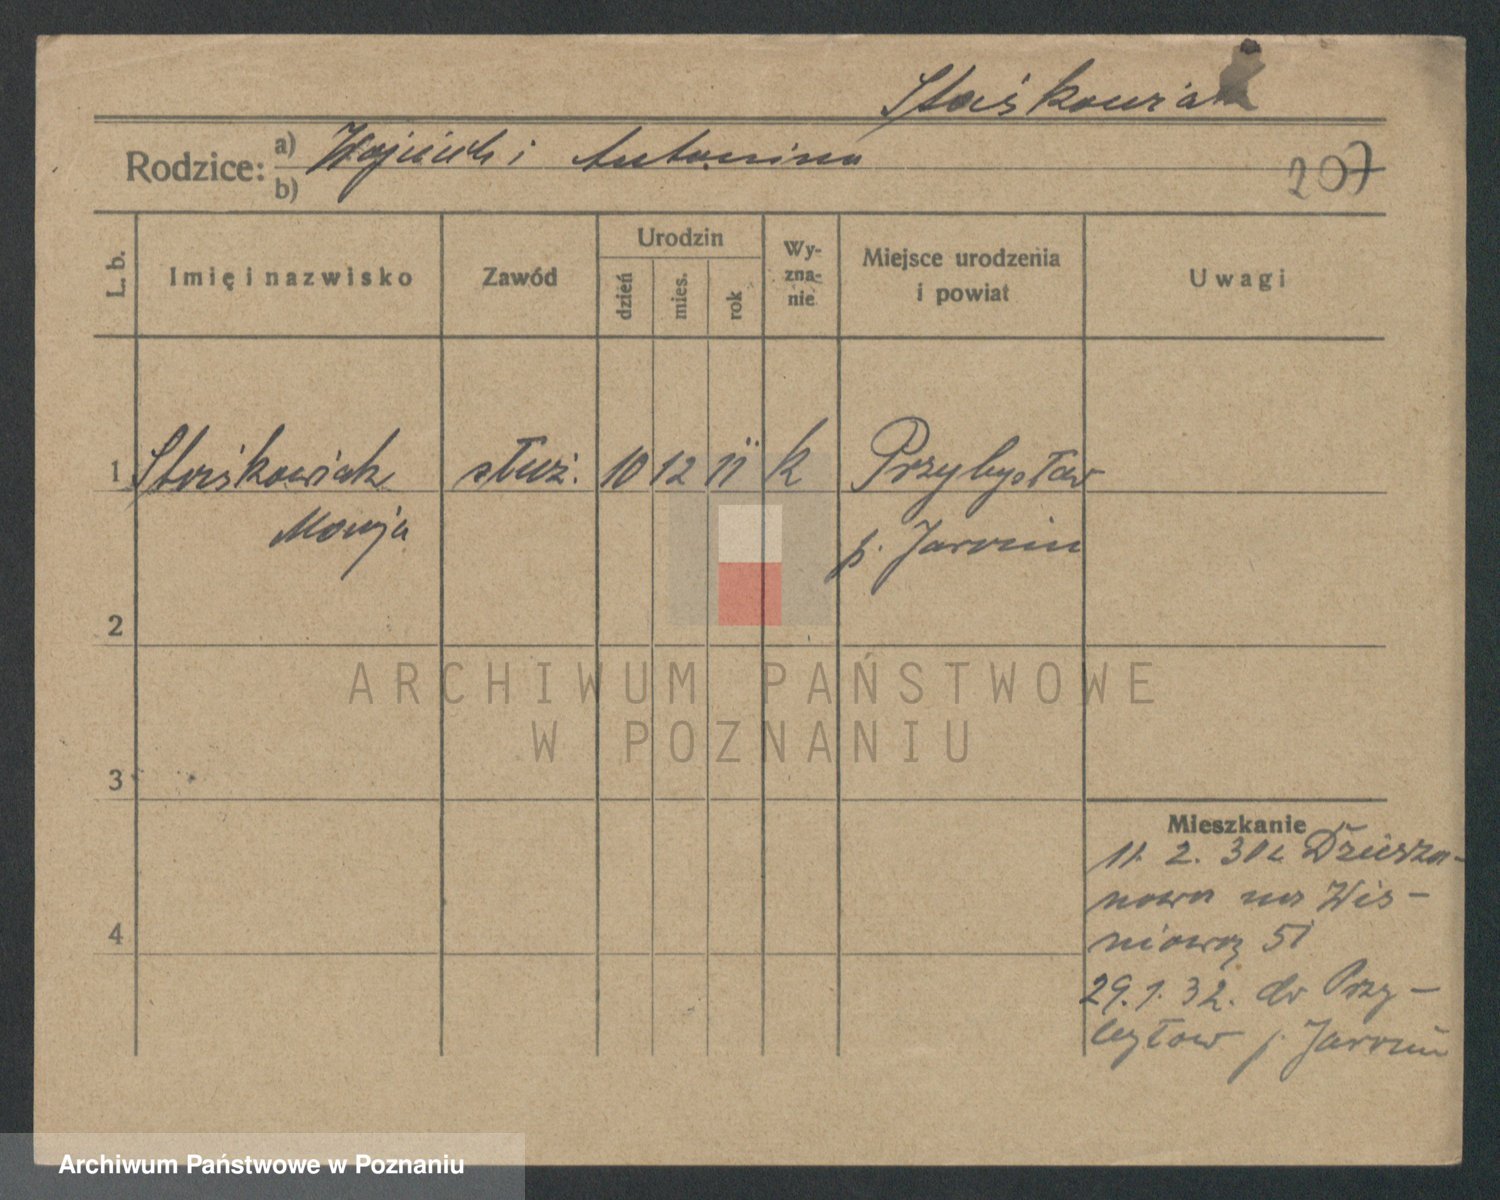 Staśkowiak
Rodzice: a) Wojciech i Antonina
b)
207
L. b.
Imię i nazwisko
Zawód
Urodzin
dzień
mies.
rok
Wy-
zna-
nie
Miejsce urodzenia
i powiat
Uwagi
1 Staśkowiak służ. 10 12 11 k Przybysław
p. Jarocin
2
ARCHIWUM PAŃSTWOWE
W POZNANIU
3
Mieszkanie
11. 2. 31
na Wiś-
niową 51
4
29. 1. 32. do Przy-
bysław p. Jarocin
Archiwum Państwowe w Poznaniu